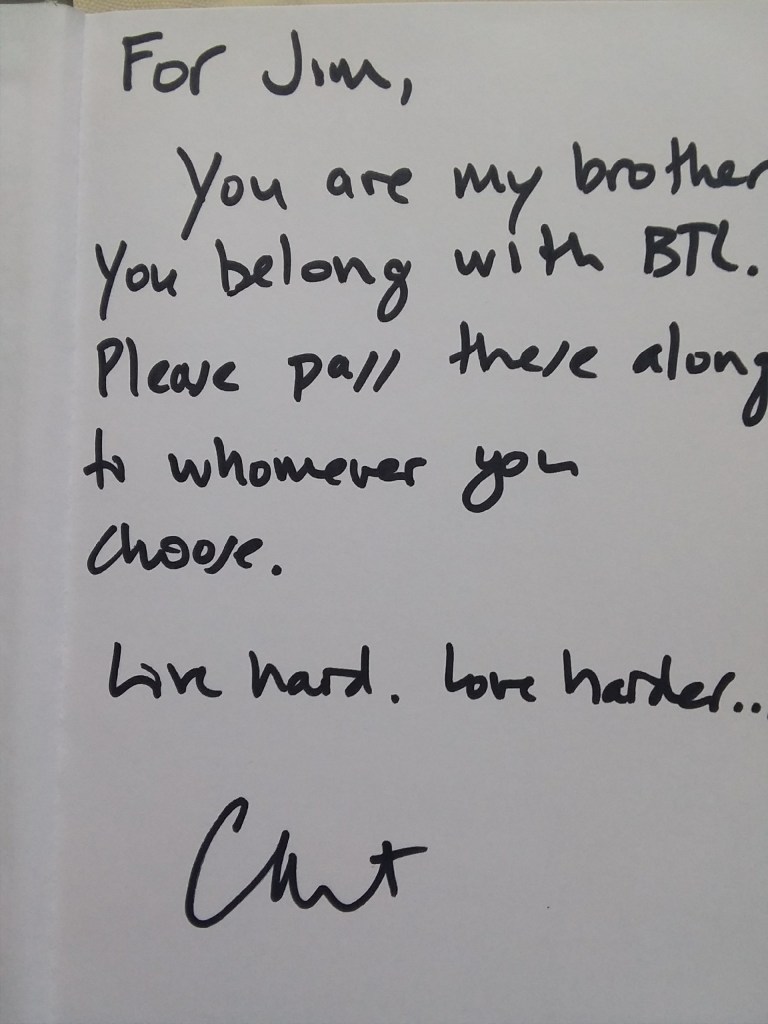 For Jim,
You are my brother
You belong with BTC.
Please pass these along
to whomever you
choose.
Live hard. Love harder...